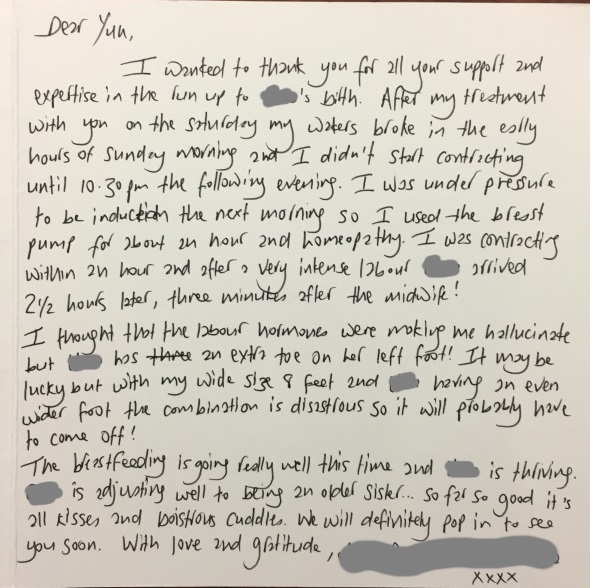 Dear Yun,
I wanted to thank you for all your support and
expertise in the run up to 's birth. After my treatment
with you on the saturday my waters broke in the early
hours of Sunday morning and I didn't start contracting
until 10.30 pm the following evening. I was under pressure
to be induction the next morning so I used the breast
pump for about an hour and homeopathy. I was contracting
within an hour and after a very intense labour arrived
2½ hours later, three minutes after the midwife!
I thought that the labour hormones were making me hallucinate
but has three an extra toe on her left foot! It may be
lucky but with my wide size 8 feet and having an even
wider foot the combination is disastrous so it will probably have
to come off!
The breastfeeding is going really well this time and is thriving.
is adjusting well to being an older sister... so far so good it's
all kisses and boistrous cuddles. We will definitely pop in to see
you soon. With love and gratitude,
xxxx